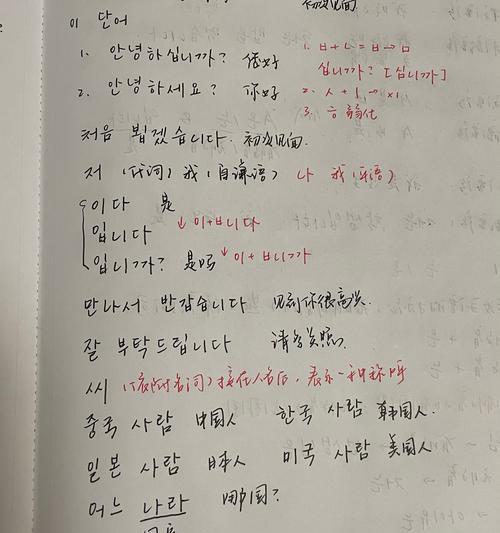 初次见面
01 단어
1. 안녕하십니까? 你好 1. ㅂ+ㄴ=ㅂ→ㅁ
십니까? [심니까]
2. 안녕하세요? 你好 2.
3. 音弱化
처음 뵙겠습니다. 初次见面.
저 (代词) 我 (自谦语) 나 我 (平语)
이다 是
입니다 ↓이+ㅂ니다
입니까? 是吗 ↓이+ㅂ니까
만나서 반갑습니다 见到你很高兴.
잘 부탁드립니다 请多关照.
씨 (依附名词) 接在人名后, 表示一种称呼
중국 사람 中国人 한국 사람 韩国人.
일본 사람 日本人 미국 사람 美国人
어느 나라 哪国?